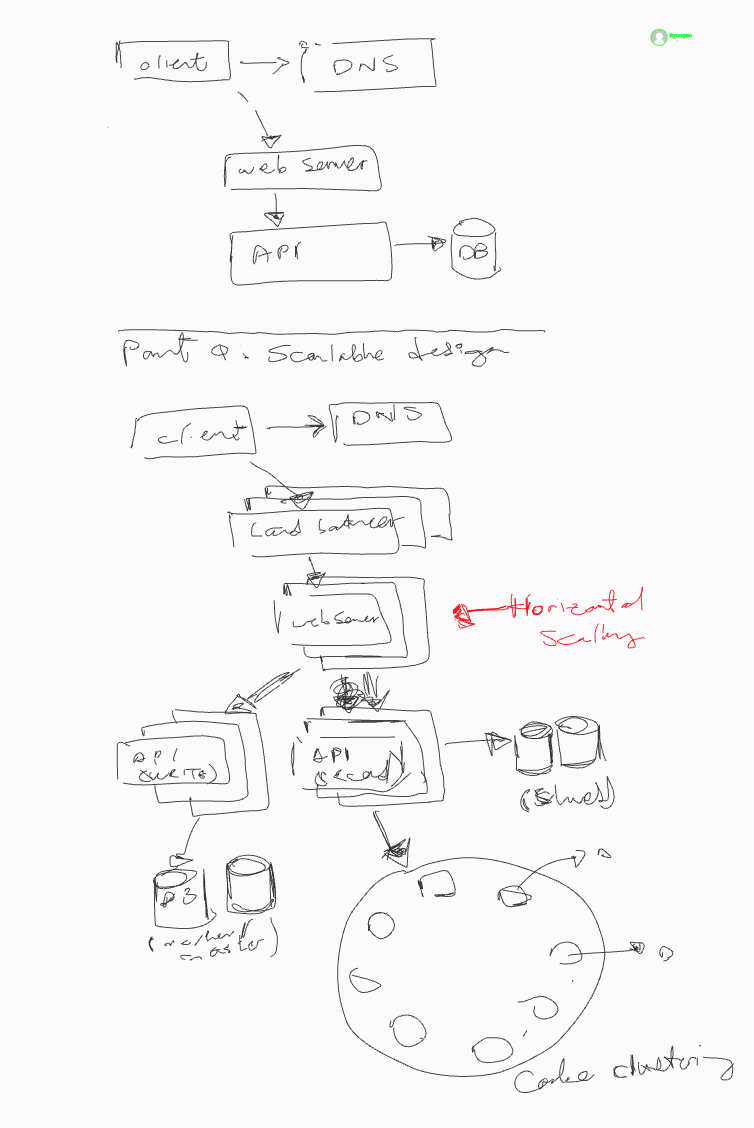 client
DNS
web server
API
DB
Part 2: Scalable design
client
DNS
Load balancer
web server
Horizontal
Scaling
API
(WRITE)
API
(READ)
DB
master
Cache clustering